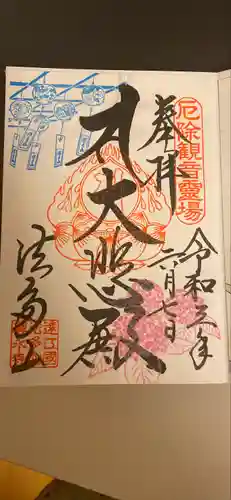 厄除観音霊場
奉拝
令和三年
六月七日
大悲殿
法多山
遠江国